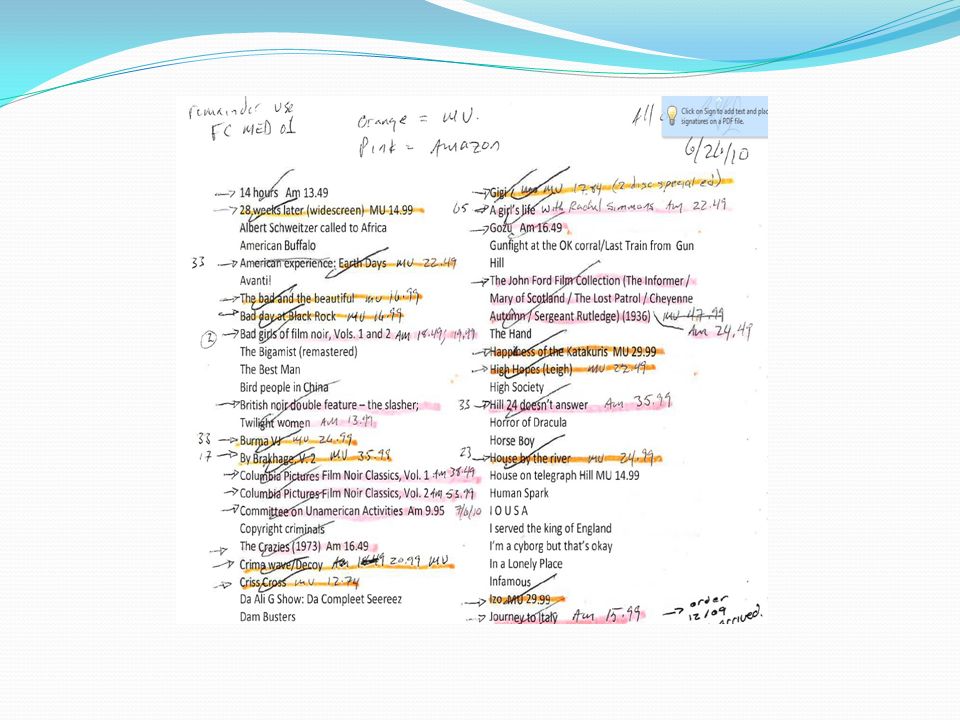 remainder use
FC MED 01
Orange = MU.
Pink = Amazon
All
Click on Sign to add text and plac
signatures on a PDF file.
6/26/10
14 hours Am 13.49
28 weeks later (widescreen) MU 14.99
Albert Schweitzer called to Africa
American Buffalo
33 American experience: Earth Days MU 22.49
Avanti!
The bad and the beautiful MU 16.99
Bad day at Black Rock MU 16.99
2 Bad girls of film noir, Vols. 1 and 2 Am 18.49; 19.99
The Bigamist (remastered)
The Best Man
Bird people in China
British noir double feature – the slasher;
Twilight women AM 13.99
33 Burma VJ MU 26.99
17 By Brakhage, V. 2 MU 35.98
Columbia Pictures Film Noir Classics, Vol. 1 Am 38.49
Columbia Pictures Film Noir Classics, Vol. 2 Am 53.99
Committee on Unamerican Activities Am 9.95 7/6/10
Copyright criminals
The Crazies (1973) Am 16.49
Crima wave/Decoy Am 20.99 MU
Criss Cross MU 12.74
Da Ali G Show: Da Compleet Seereez
Dam Busters
Gigi MU 17.84 (2 disc special ed)
65 A girl's life with Rachel Simmons Am 22.49
Gozu Am 16.49
Gunfight at the OK corral/Last Train from Gun
Hill
The John Ford Film Collection (The Informer /
Mary of Scotland / The Lost Patrol / Cheyenne
Autumn / Sergeant Rutledge) (1936) MU 47.99
Am 24.49
The Hand
Happiness of the Katakuris MU 29.99
High Hopes (Leigh) MU 22.49
High Society
33 Hill 24 doesn't answer Am 35.99
Horror of Dracula
Horse Boy
23 House by the river MU 24.99
House on telegraph Hill MU 14.99
Human Spark
I O U S A
I served the king of England
I'm a cyborg but that's okay
In a Lonely Place
Infamous
Izo MU 29.99
Journey to Italy Am 15.99
order
12/09
arrived.